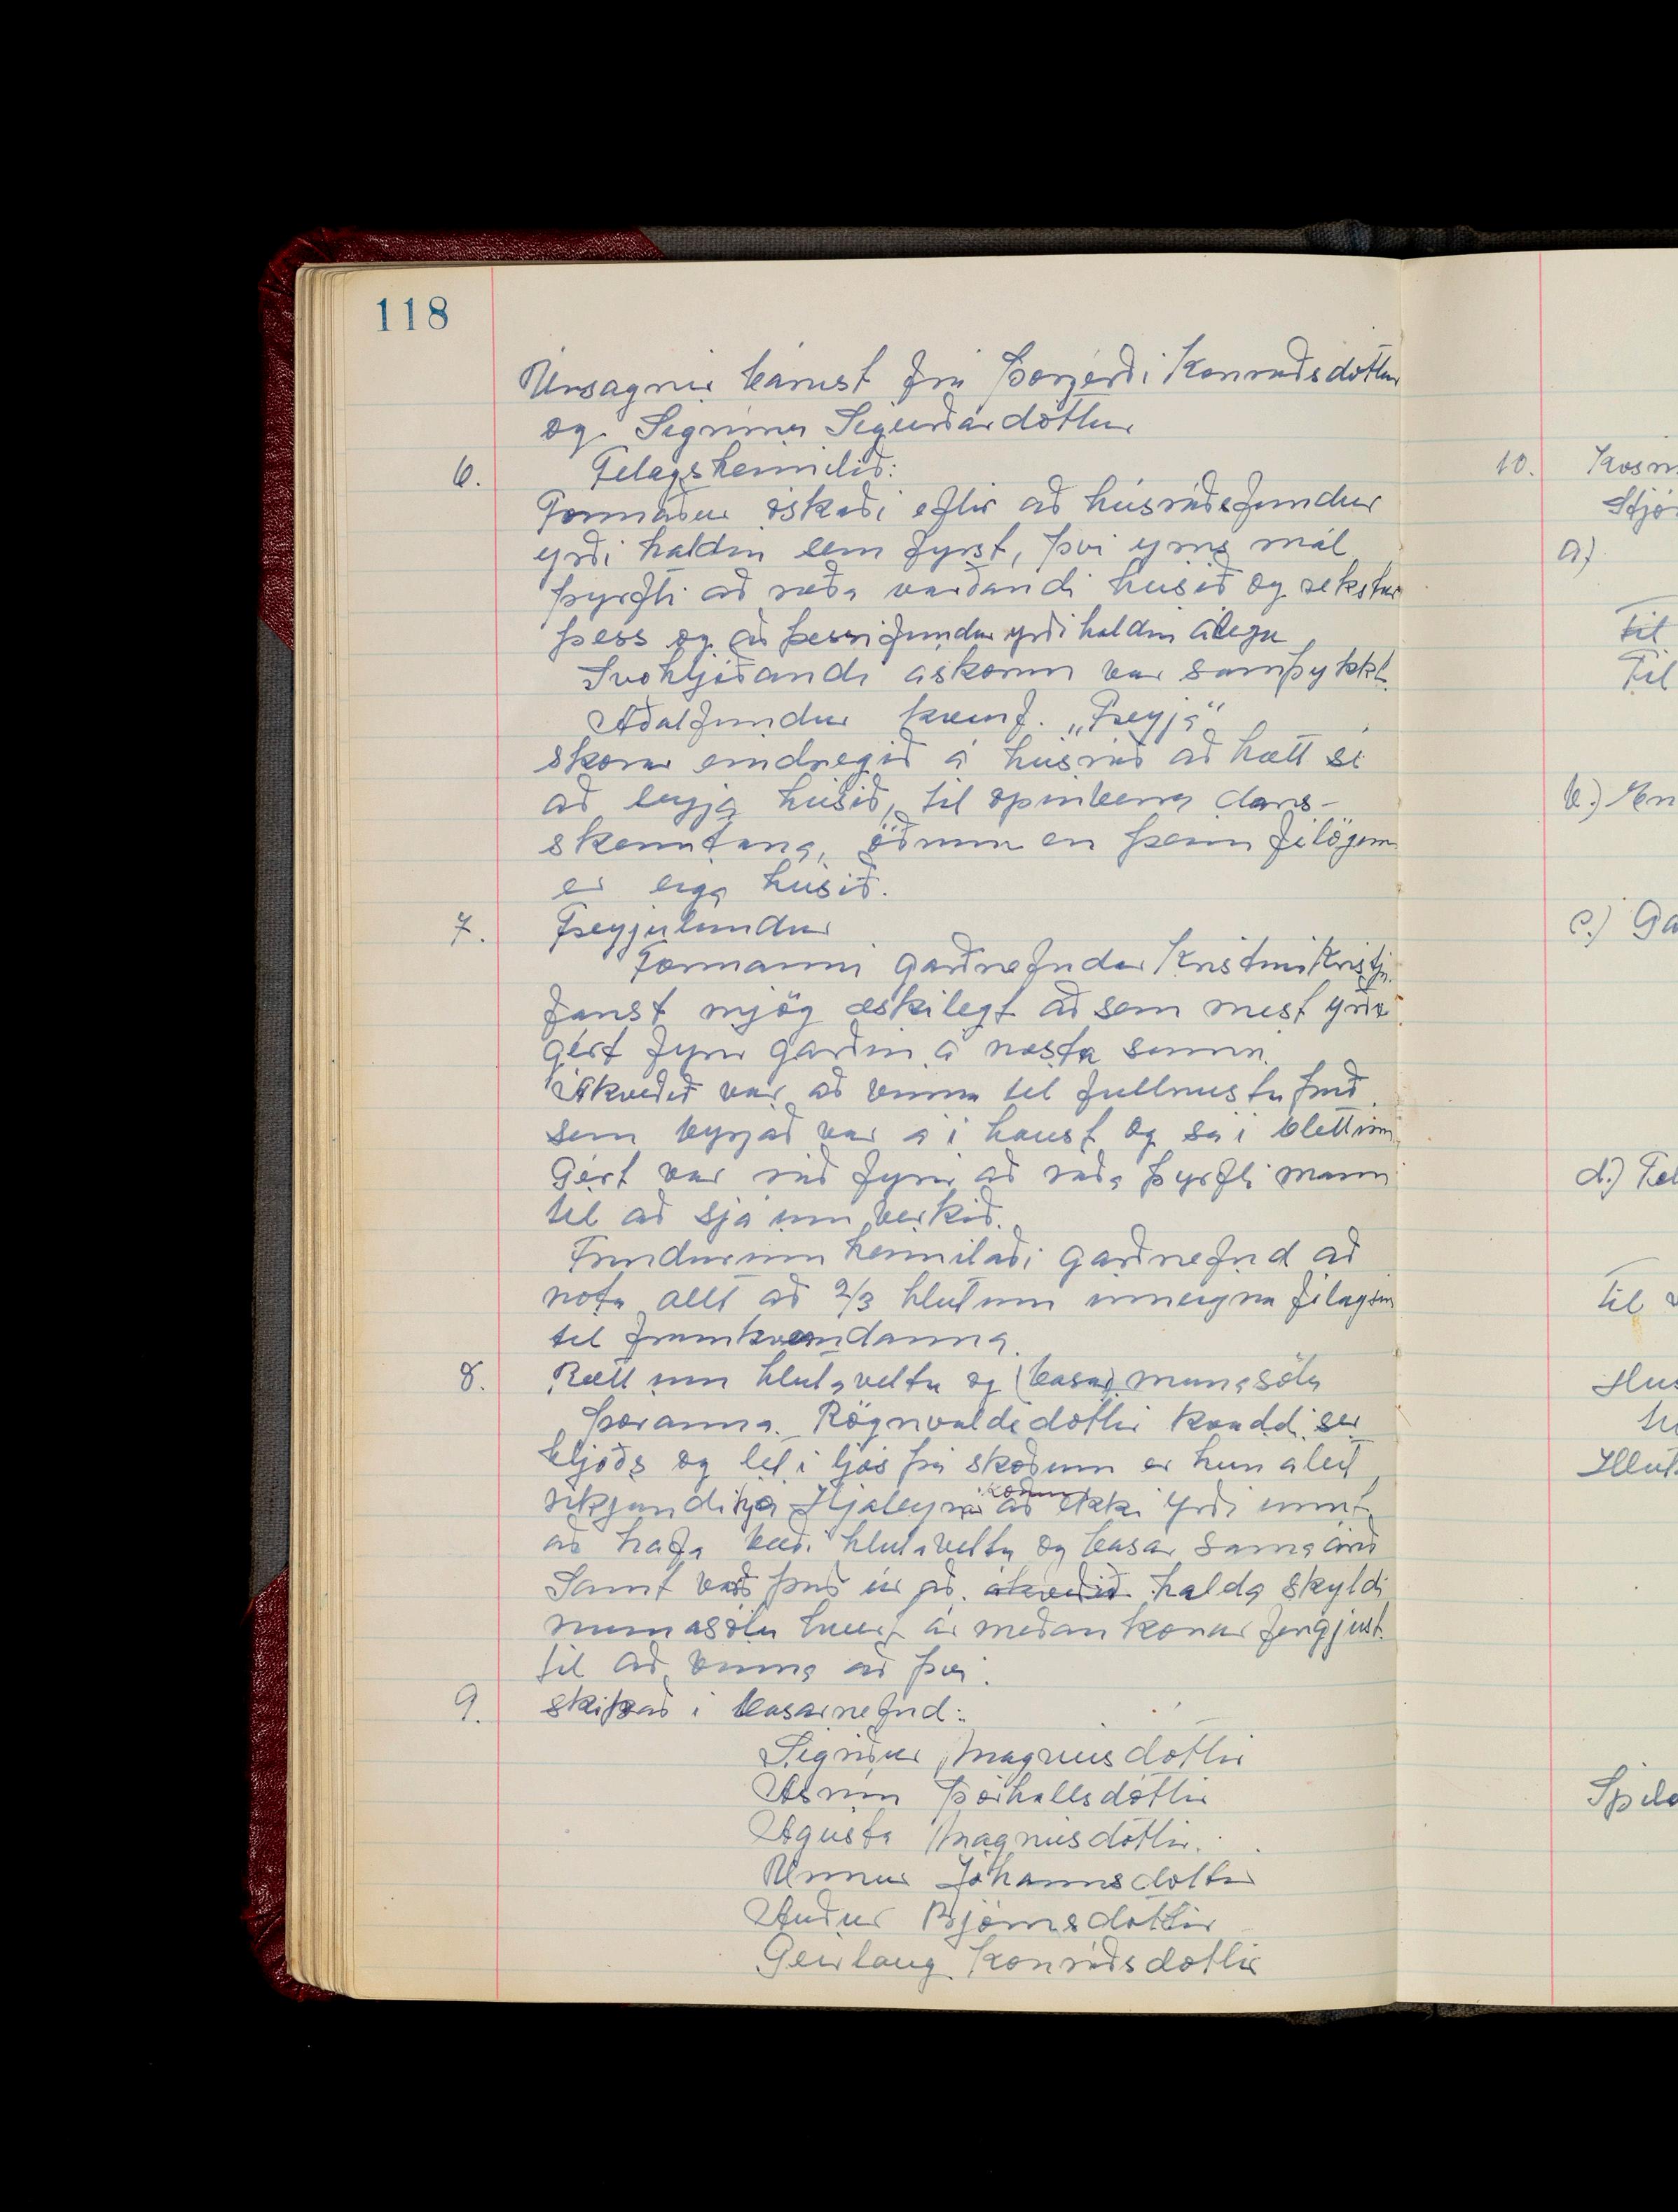 118
Úrsagnir bárust frá Þorgerði Konráðsdóttur
og Sigrúnu Sigurðardóttur
6. Félagsheimilið:
Formaður óskaði eftir að húsráðsfundur
yrði haldin sem fyrst, því ýms mál
þyrfti að ræða varðandi húsið og rekstur
þess og að þessi fundur yrði haldin árlega
Svohljóðandi áskorun var samþykkt.
Aðalfundur kvenf. „Freyja"
skorar eindregið á húsráð að hætt sé
að leyja húsið, til opinberra dans-
skemtana, öðrum en þeim félögum
er eiga húsið.
7. Freyjulundur
Formanni garðnefndar Kristínu Kristj.
fanst mjög æskilegt að sem mest yrði
gert fyrir garðin á næsta sumri.
Ákveðið var að vinna til fullnustu það
sem byrjað var á í haust og sá í blettinn
Gert var ráð fyrir að ráða þyrfti mann
til að sjá um verkið.
Fundurinn heimilaði garðnefnd að
nota allt að 2/3 hlutum inneignar félagsins
til framkvæmdanna.
8. Rætt um hlutaveltu og (basar) munasölu
Þóranna Rögnvaldsdóttir kvaddi sér
hljóðs og lét í ljós þá skoðun er hún áleit
ríkjandi hjá Hjalteyrar konum að ekki yrði unnt
að hafa bæði hlutaveltu og basar sama árið
Samt varð það úr að ákveðið halda skyldi
munasölu hvert ár meðan konar fengjust
til að vinna að því.
9. skipað í basarnefnd:
Sigríður Magnúsdóttir
Ásrún Þórhallsdóttir
Ágústa Magnúsdóttir.
Unnur Jóhannsdóttir
Auður Björnsdóttir
Geirlaug Konráðsdóttir
10. Kosn
Stjó
a)
Til
Til
b.)
c.) Ga
d.) Fel
Til
Hús
Hlut
Spila